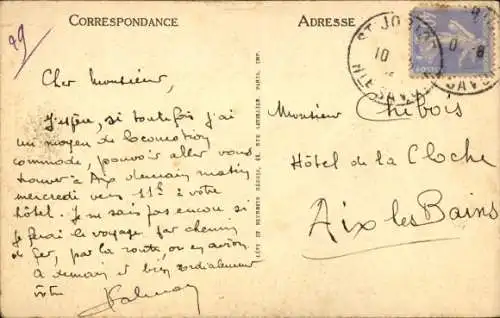 CORRESPONDANCE
ADRESSE
29
Cher Monsieur,
J'espère, si toutefois j'ai
un moyen de locomotion
commode, pouvoir aller vous
trouver à Aix demain matin
mercredi vers 11h à votre
hôtel. Je ne sais pas encore si
je ferai le voyage par chemin
de fer, par la route, ou en avion.
A demain et bien cordialement
vôtre
Monsieur Chibois
Hôtel de la Cloche
Aix les Bains
ST JO
10
HTE SAVOIE
POSTES